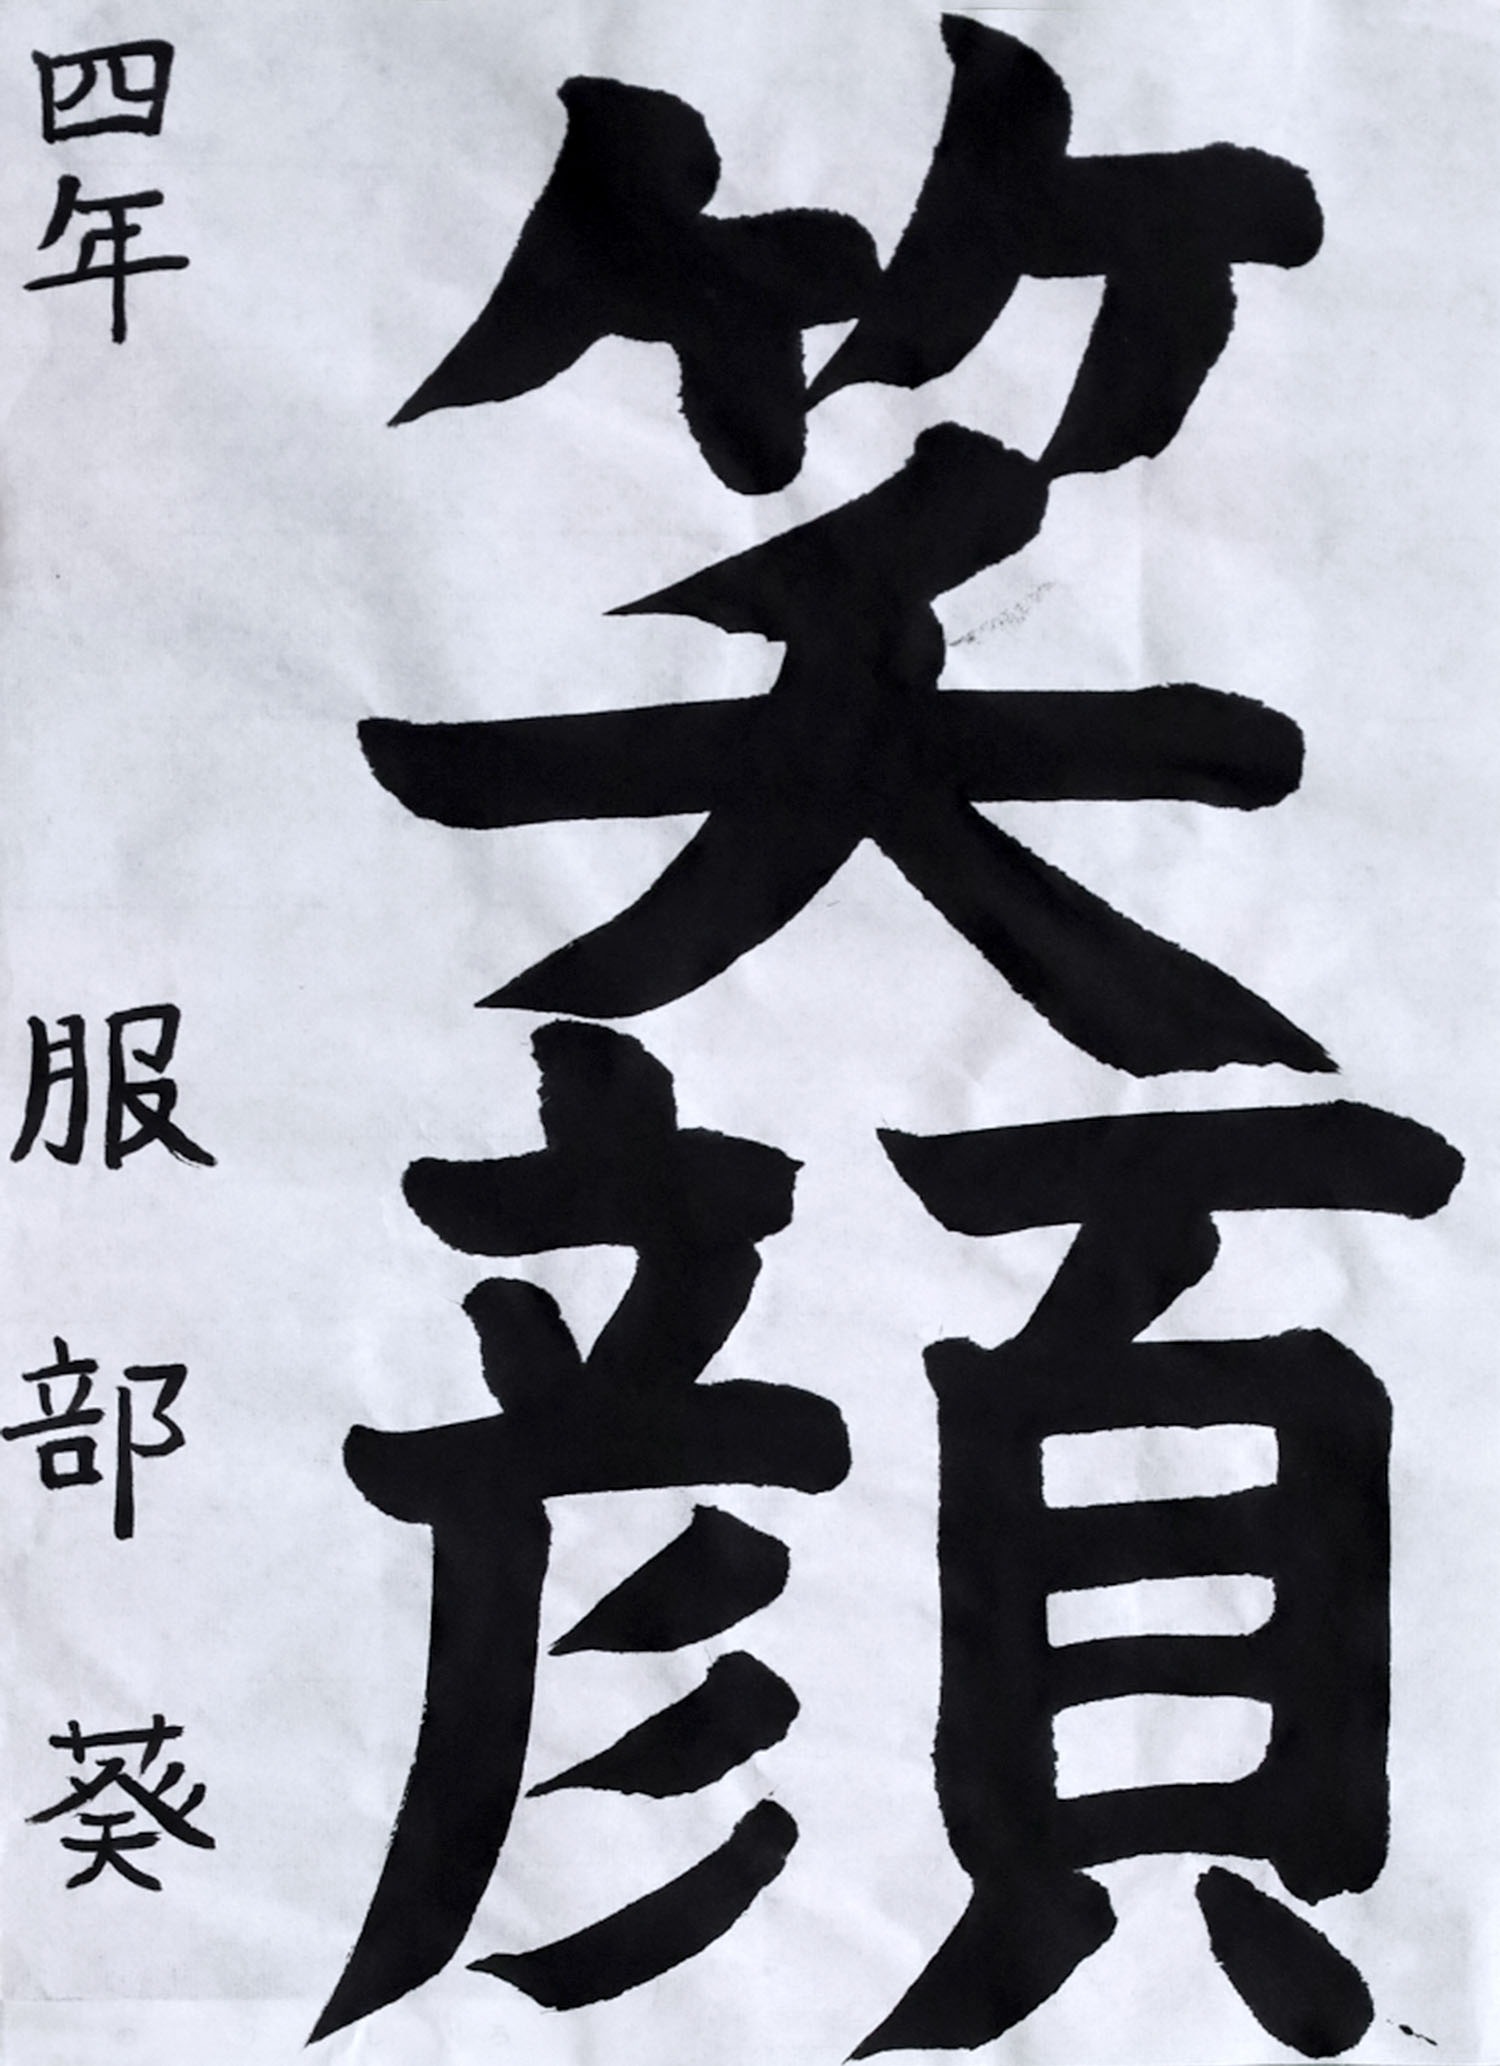 笑顔
四年 服部葵